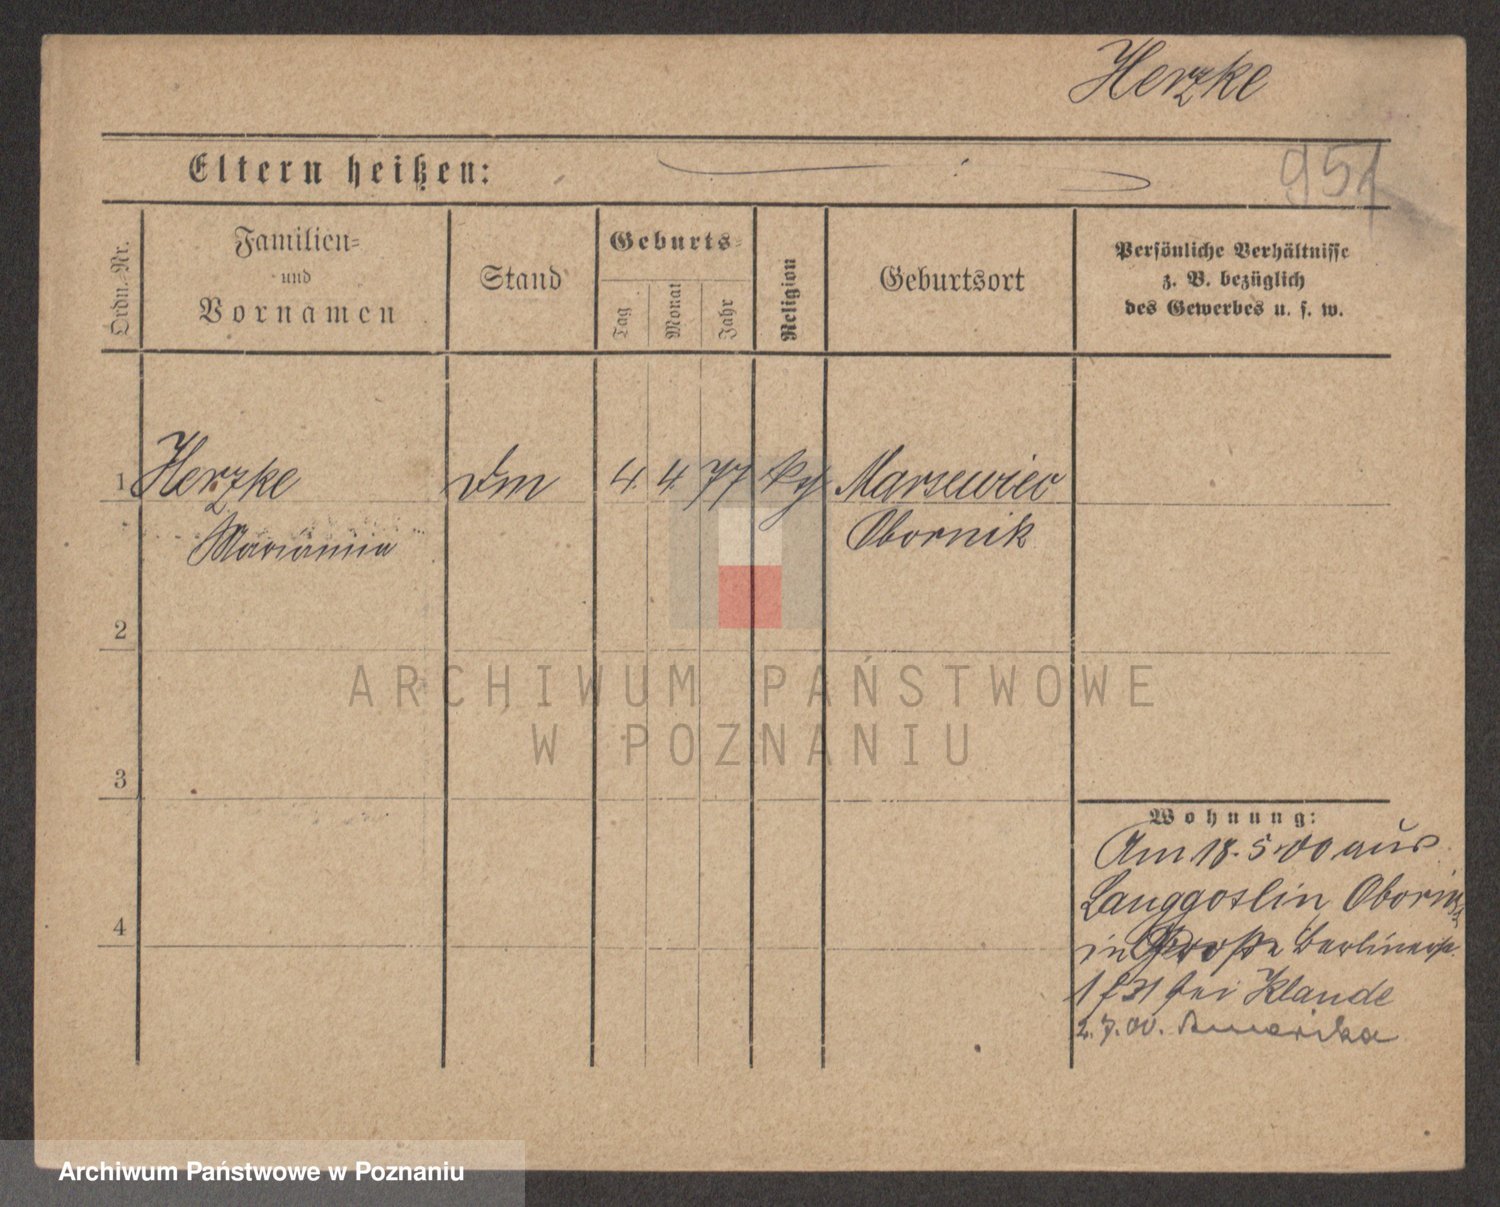 Herzke
Eltern heißen:
951
Ordn.-Nr.
Familien-
und
Vornamen
Stand
Geburts-
Tag
Monat
Jahr
Religion
Geburtsort
Persönliche Verhältnisse
z. B. bezüglich
des Gewerbes u. s. w.
1 Herzke Dm 4. 4. 77 kg Marsewiec
Marianna Obornik
2
3
4
ARCHIWUM PAŃSTWOWE
W POZNANIU
Wohnung:
Am 18. 5. 00 aus
Langgoslin Obornik
in Große Berlinerstr.
bei Klaude
2. 7. 00. Amerika
Archiwum Państwowe w Poznaniu